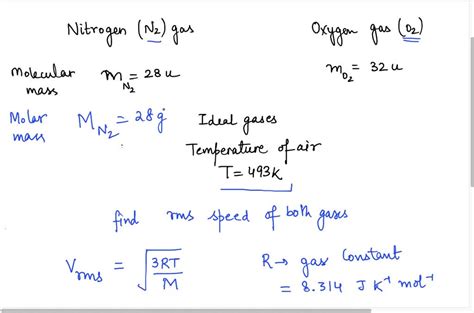 Nitrogen (N₂) gas
Oxygen gas (O₂)
Molecular mass m_N₂ = 28 u
m_O₂ = 32 u
Molar mass M_N₂ = 28 g
Ideal gases
Temperature of air
T = 493K
find rms speed of both gases
V_rms = √(3RT/M)
R → gas constant
= 8.314 J K⁻¹ mol⁻¹